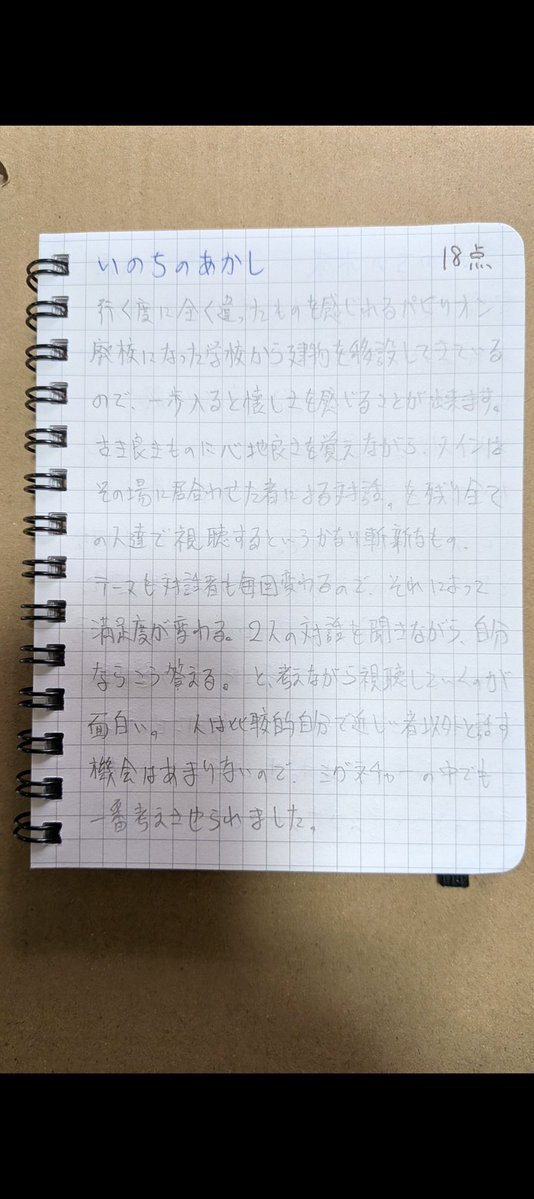 いのちのあかし 18点
行く度に全く違ったものを感じれるパビリオン
廃校になった学校から建物を移設してきている
ので、一歩入ると懐しさを感じることが出来ます。
古き良きものに心地良さを覚えながら、メインは
その場に居合わせた者による対話。を残り全て
の人達で視聴するというかなり斬新なもの。
テーマも対話者も毎回変わるので、それによって
満足度が変わる。2人の対話を聞きながら、自分
ならこう答える。と、考えながら視聴していくのが
面白い。人は比較的自分で近しい者以外と話す
機会はあまりないので、シグネチャーの中でも
一番考えさせられました。